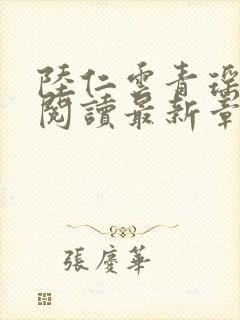 陸仁雲青瑤
閱讀最新章
張慶華